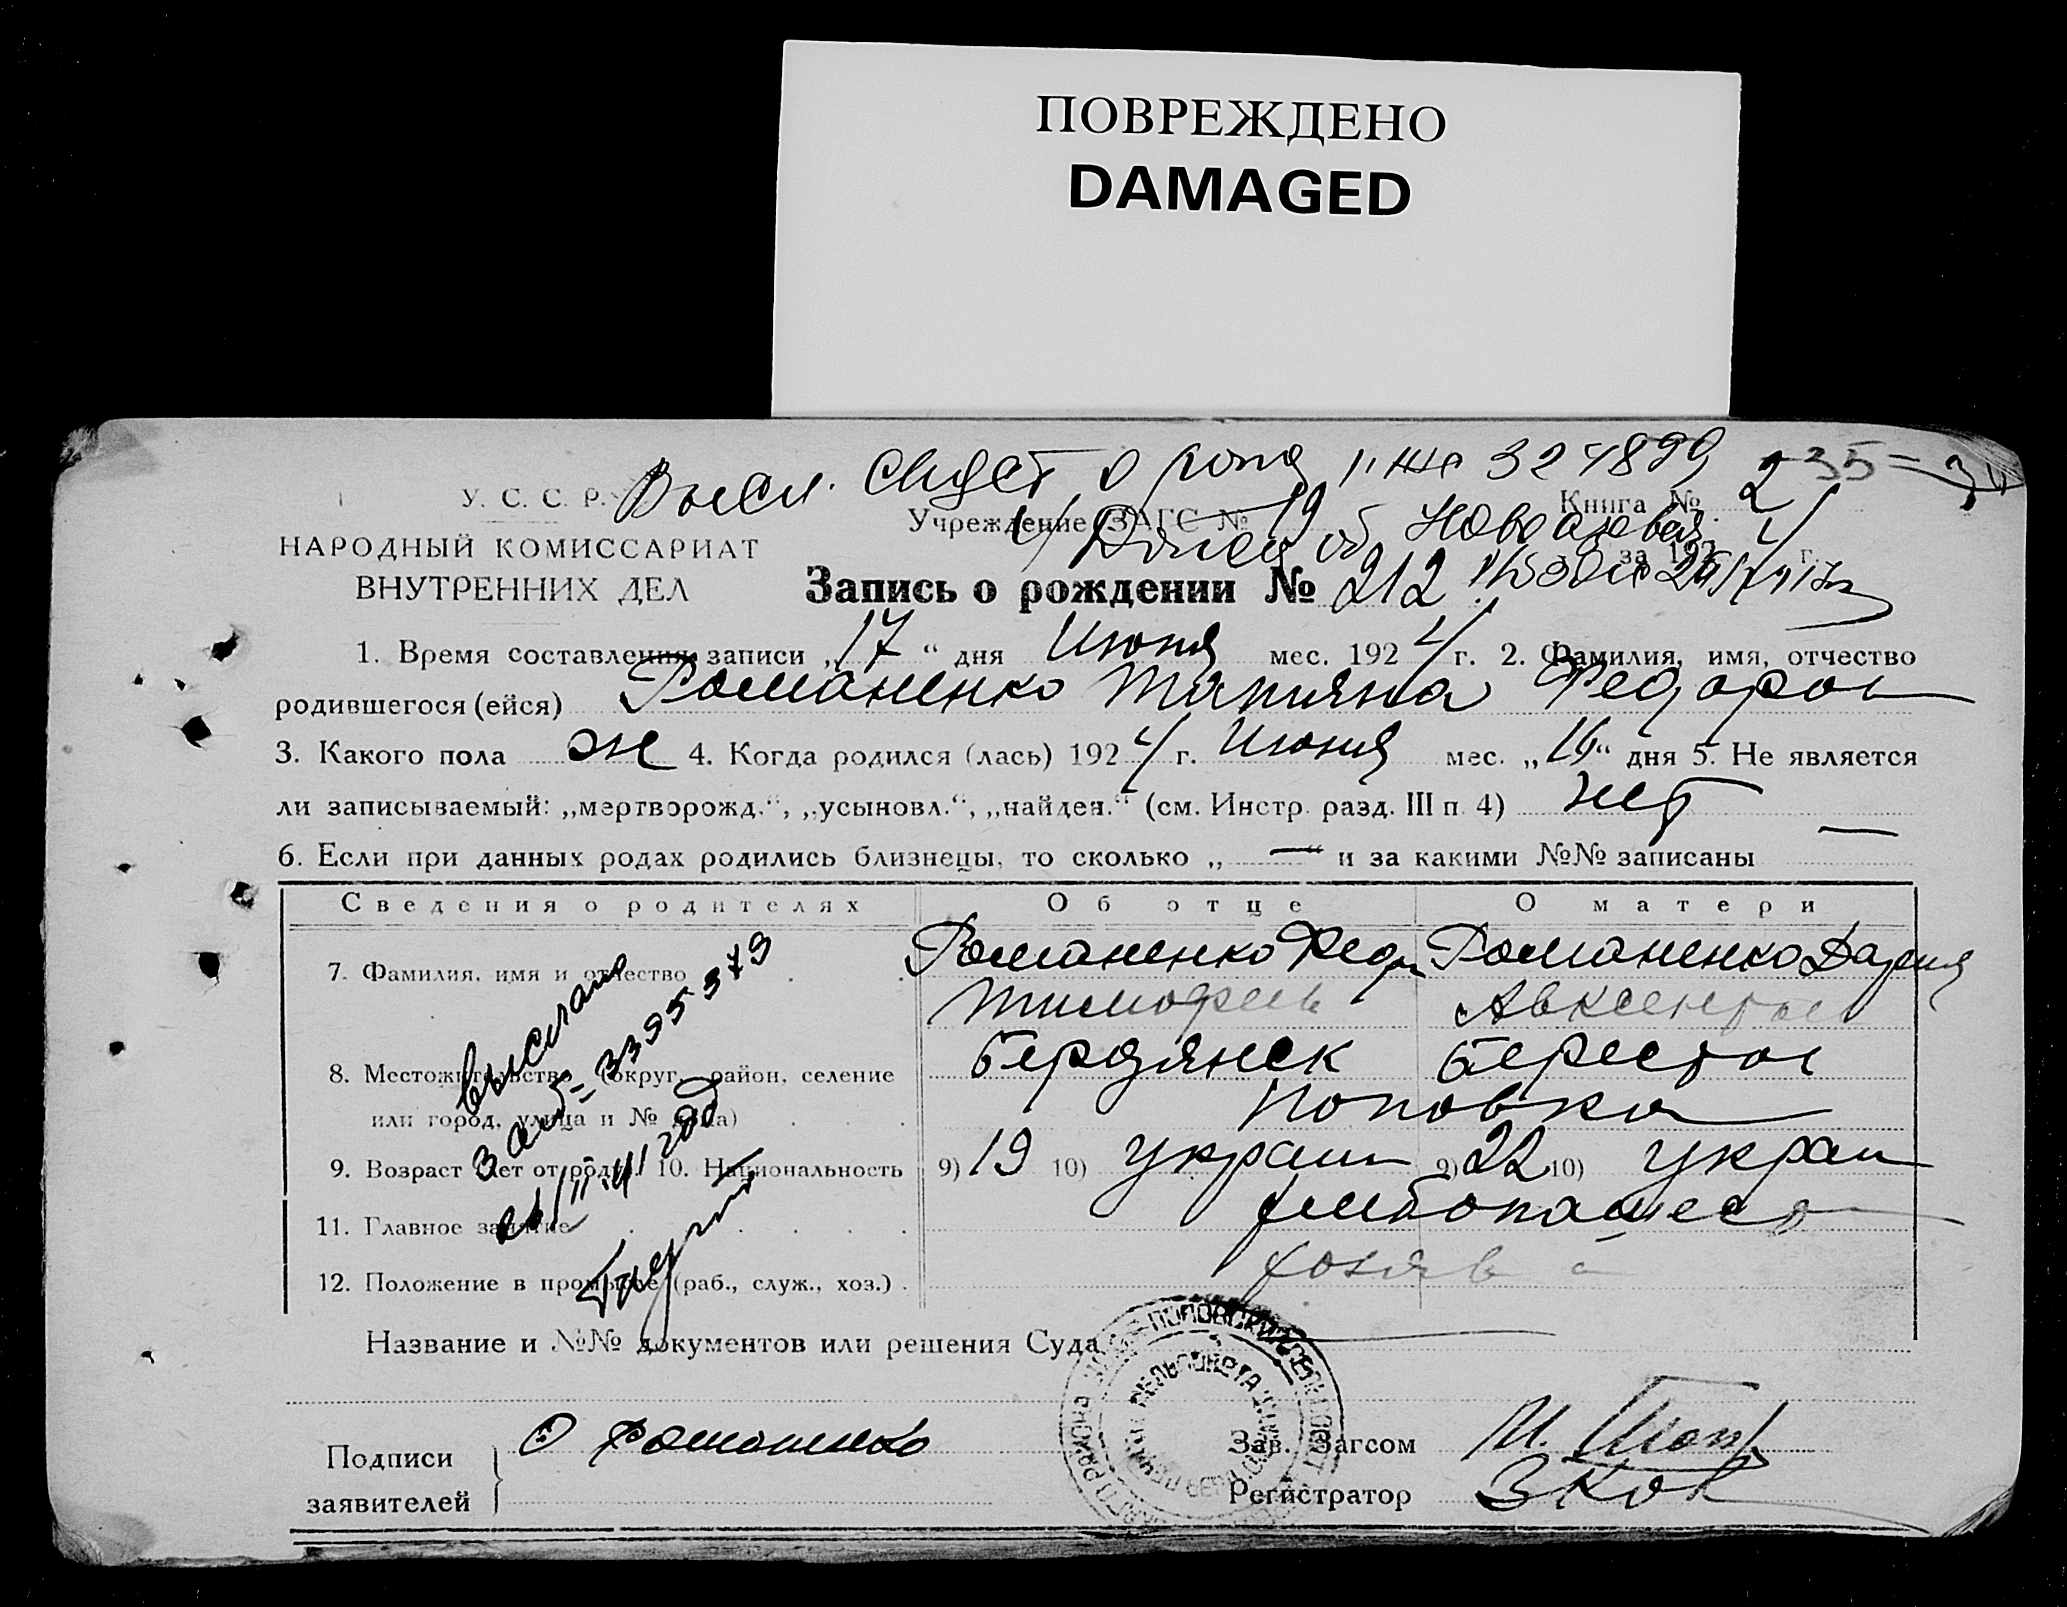 ПОВРЕЖДЕНО
DAMAGED
Высл. свидет о рожд 324899 35
У. С. С. Р.
Учреждение ЗАГС № 19
Книга № 2
НАРОДНЫЙ КОМИССАРИАТ
ВНУТРЕННИХ ДЕЛ
об Новоазовск
за 192 4 г.
Запись о рождении № 212
1. Время составления записи „17“ дня Июня мес. 1924 г. 2. Фамилия, имя, отчество
родившегося (ейся) Романенко Татияна Федоров
3. Какого пола ж 4. Когда родился (лась) 1924 г. Июня мес. „16“ дня 5. Не является
ли записываемый: „мертворожд.“, „усыновл.“, „найден.“ (см. Инстр. разд. III п. 4) нет
6. Если при данных родах родились близнецы, то сколько „ — “ и за какими №№ записаны —
Сведения о родителях Об отце О матери
7. Фамилия, имя и отчество Романенко Федор Романенко Дария
Тимофеев Авксентьев
8. Местожительство (округ, район, селение Бердянск Берестов
или город, улица и № дома) Поповка
9. Возраст лет от роду 10. Национальность 9) 19 10) украин 9) 22 10) украин
11. Главное занятие хлебопашест
12. Положение в промысле (раб., служ., хоз.) хозяев
выслано
3395373
Название и №№ документов или решения Суда
Подписи
заявителей
Романенко
Зав. Загсом
Регистратор